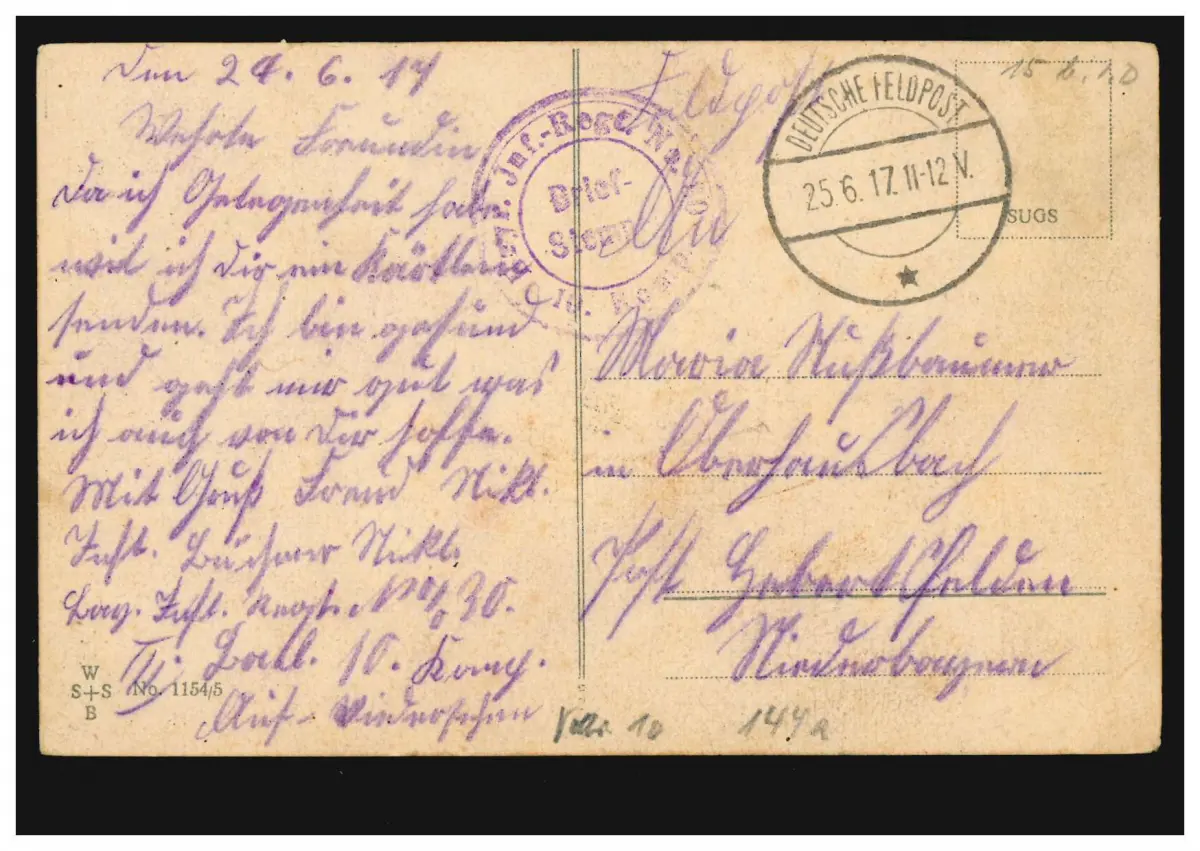 Den 24. 6. 17
Wehrte Freundin
Da ich Gelegenheit habe
will ich dir ein Kärtlein
senden. Ich bin gesund
und geht mir gut was
ich auch von Dir hoffe.
Mit Gruß Freund Nikl.
Inft. Nikl.
Bay. Inft. Regt. No 30.
III. Batl. 10. Komp.
Auf Wiedersehen
W
S+S
B
No. 1154/5
Inf.-Regt. Nr. 30
Brief-
Stempel
10. Komp.
Feldpost
An
Maria Nußbaumer
in Oberhausbach
Post Hebertsfelden
Niederbayern
DEUTSCHE FELDPOST
25.6.17.11-12 V.
SUGS
10 144a